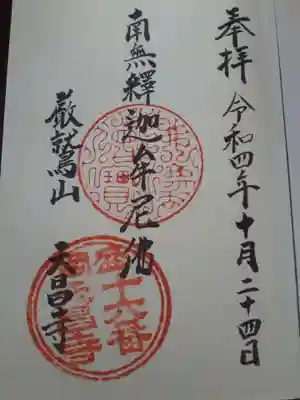 奉拝 令和四年十月二十四日
南無釋迦牟尼佛
巌鷲山 天昌寺